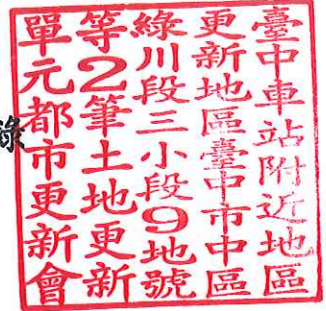 臺中車站附近地區
更新地區臺中市中區
綠川段三小段9地號
等2筆土地更新
單元都市更新會
錄